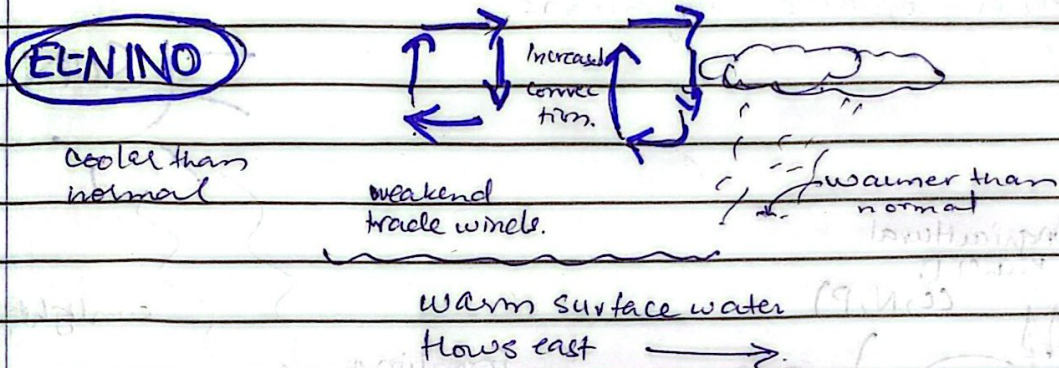 EL-NINO
Increased
convec
tion.
cooler than
normal
weakend
trade winds.
warmer than
normal
warm surface water
flows east